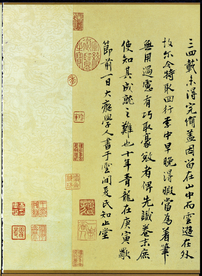 三四載未得完備蓋因留在山中而雲遊在外
故尔今特取回行李中早晚得暇當為着筆
無用過慮有巧取豪敚者俾先識卷末庶
使知其成就之難也十年青龍在庚寅歜
節前一日大癡學人書于雲間夏氏知止堂